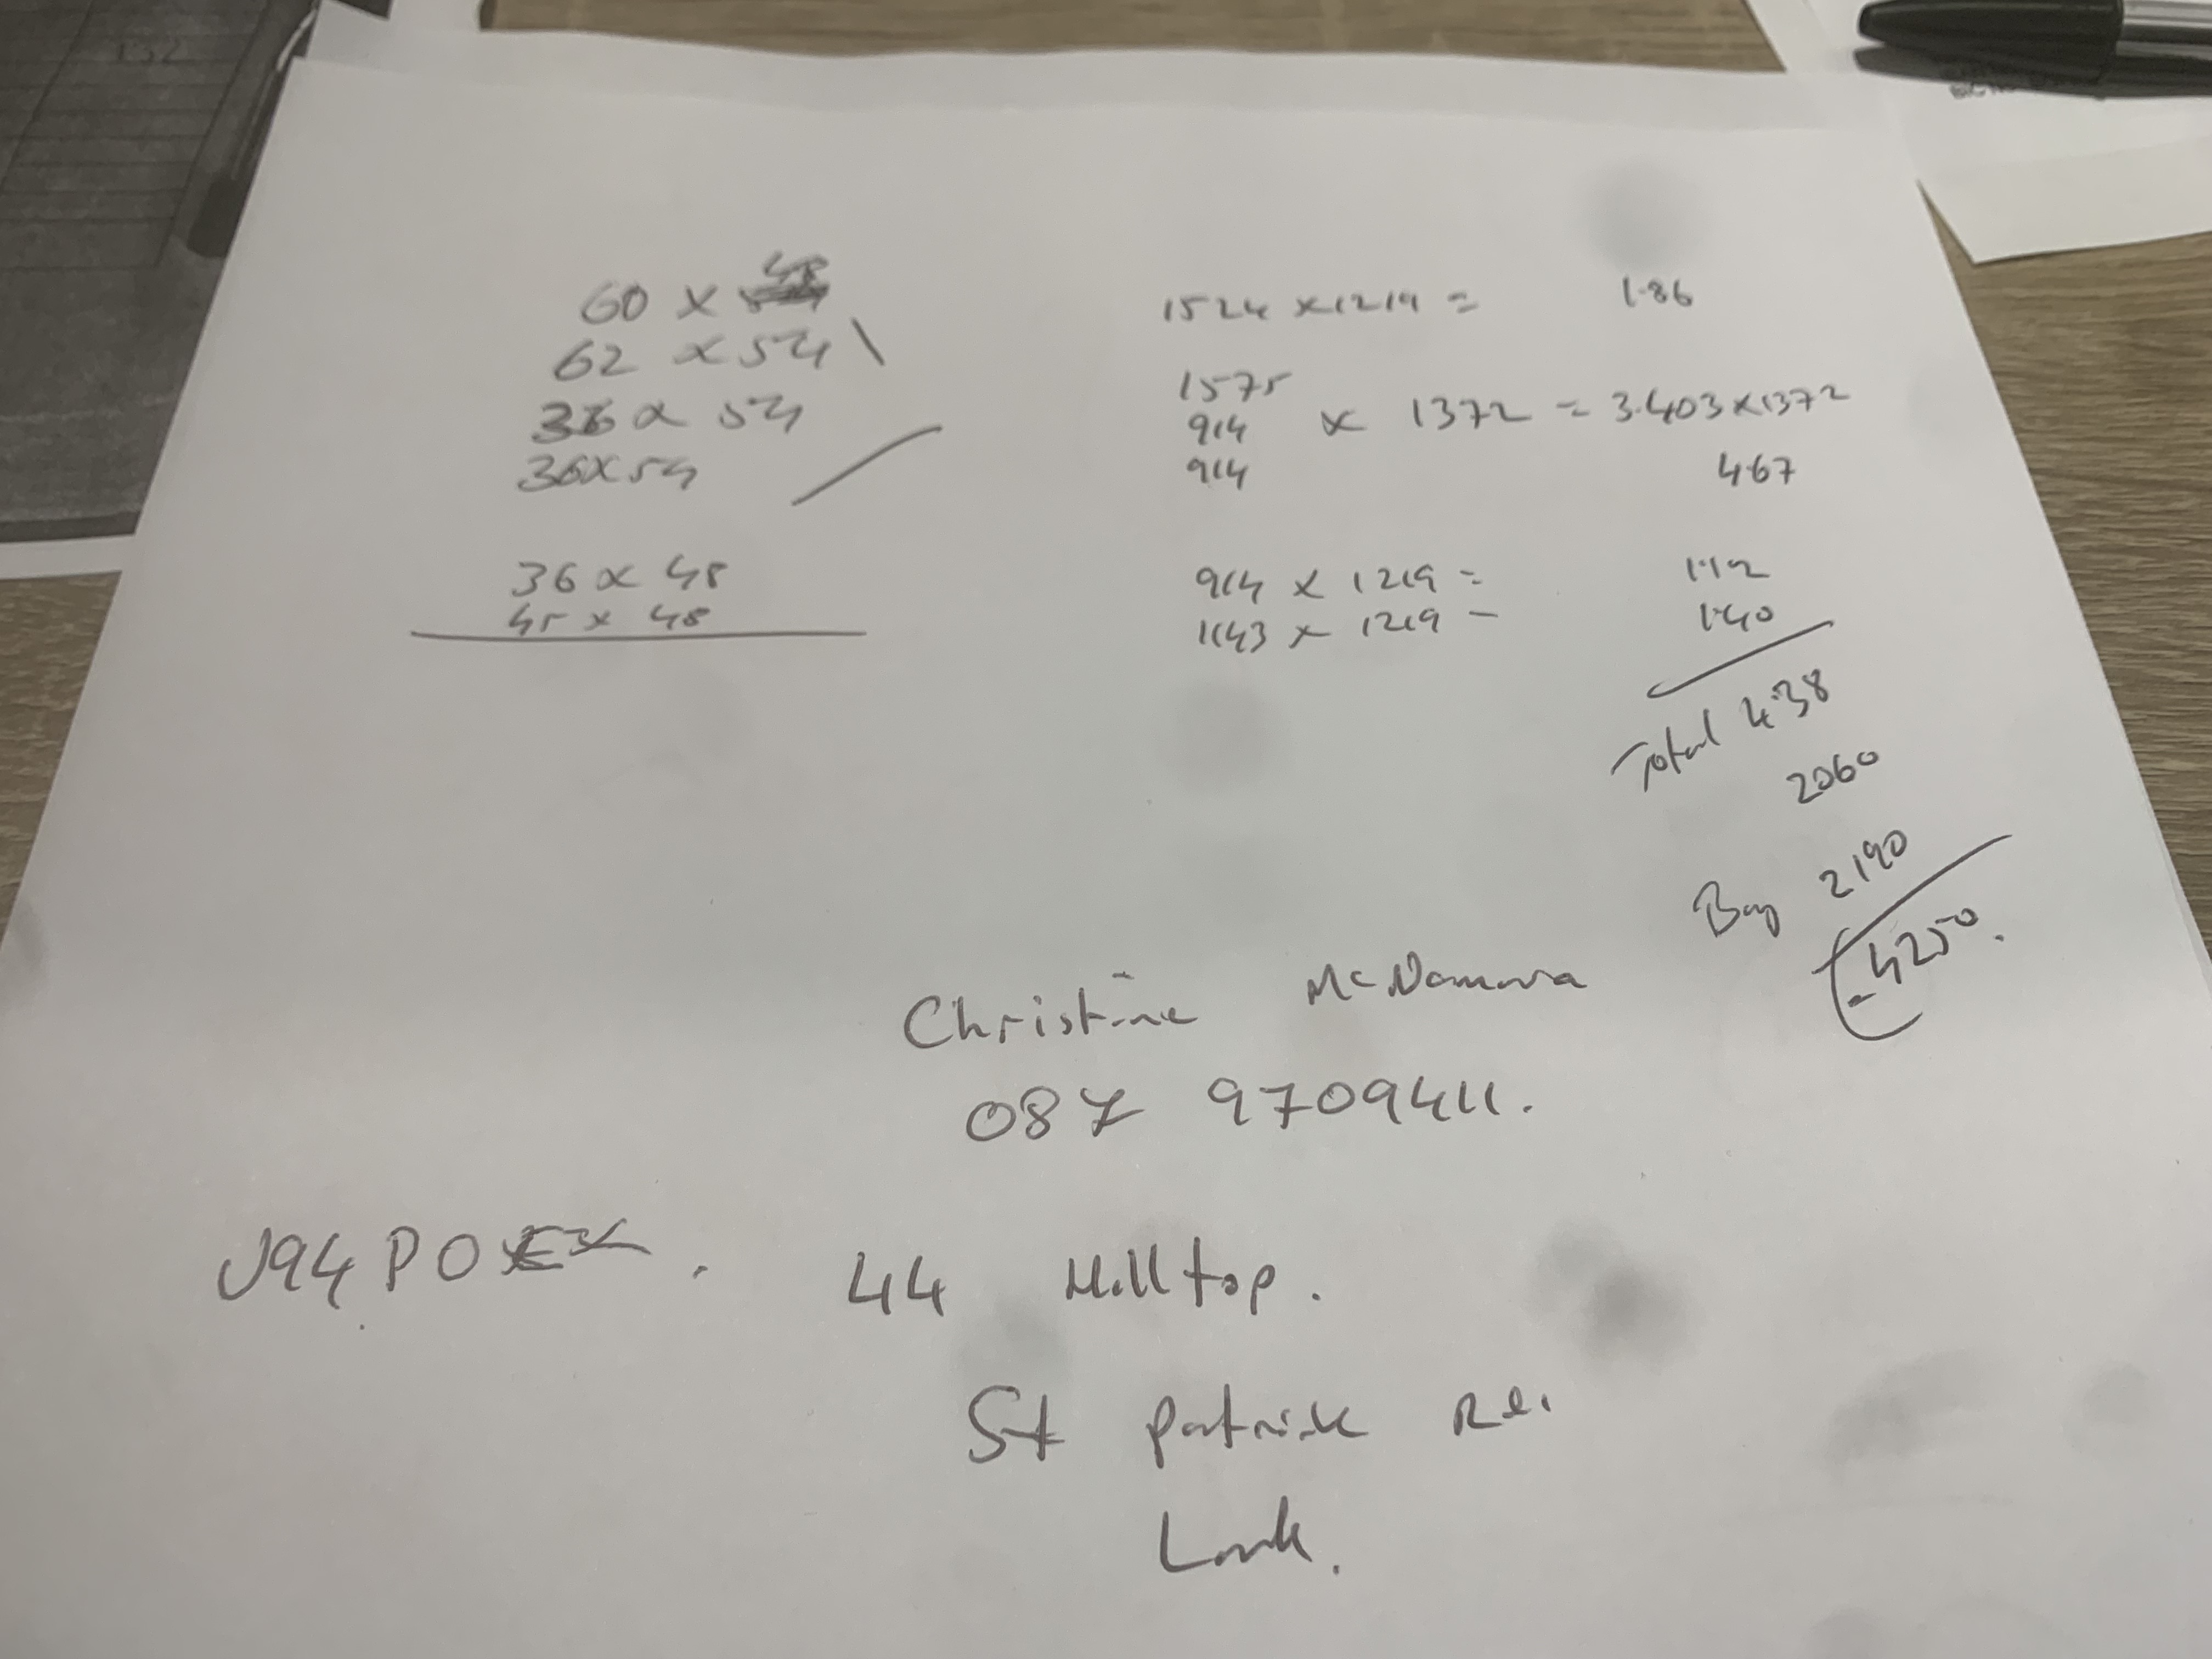 60 x 48
62 x 54
36 x 54
36 x 54
36 x 48
45 x 48
1524 x 1219 = 1.86
1575
914 x 1372 = 3.403 x 1372
914 4.67
914 x 1219 = 1.12
1143 x 1219 = 1.40
Total 4.38
2060
Bay 2190
4250.
Christine
087 9709411.
V94 P0
44 Milltop.
St Patrick Rd.